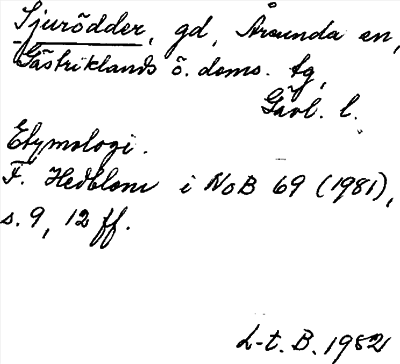 Sjurödder, gd, Årsunda sn,
Gästriklands ö. doms. tg,
Gävl. l.
Etymologi.
F. Hedblom i NoB 69 (1981),
s. 9, 12 ff.
L-t. B. 1982